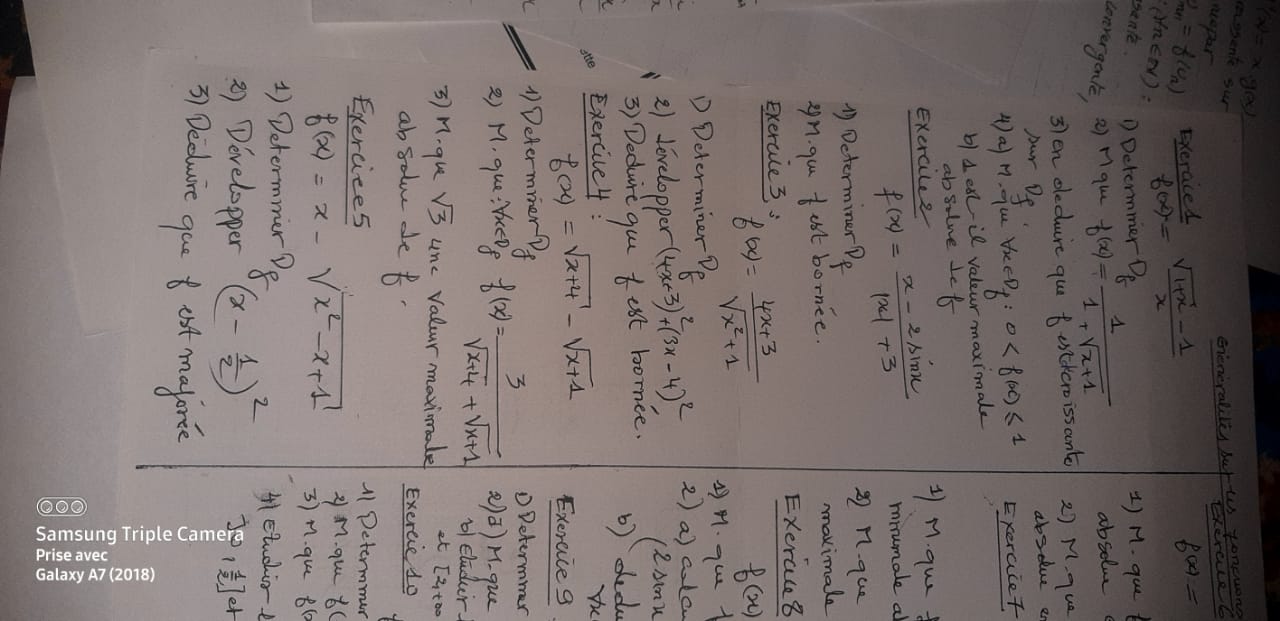 f(x) = x g(x)
sur
= f(Un)
convergente,
Généralités sur les fonctions
Exercice 1
f(x) = (√(1+x) - 1)/x
1) Determiner Df
2) M que f(x) = 1/(1 + √(x+1))
3) en deduire que f est decroissante
sur Df.
4) a) M. que ∀x∈Df : 0 < f(x) ≤ 1
b) 1 est-il valeur maximale
absolue de f
Exercice 2
f(x) = (x - 2 sin x)/(|x| + 3)
1) Determiner Df
2) M. que f est bornée.
Exercice 3 :
f(x) = (4x+3)/√(x²+1)
1) Determiner Df
2) développer (4x+3)² + (3x-4)²
3) Deduire que f est bornée.
Exercice 4 :
f(x) = √(x+4) - √(x+1)
1) Determiner Df
2) M. que : ∀x∈Df f(x) = 3/(√(x+4) + √(x+1))
3) M. que √3 une valeur maximale
absolue de f.
Exercice 5
f(x) = x - √(x²-x+1)
1) Determiner Df
2) Développer (x - 1/2)²
3) Déduire que f est majorée
Exercice 6
f(x) =
1) M. que f
absolue
2) M. que
absolue
Exercice 7
1) M. que f
minimale
2) M. que
maximale
Exercice 8
f(x)
1) M. que f
2) a) calcu
(2 sin x
b) dedu
∀x
Exercice 9
1) Determiner
2) a) M. que
b) Etudier
et [2,+∞
Exercice 10
1) Determiner
2) M. que f(
3) M. que f(x
4) Etudier
]0, 1/2] et
Samsung Triple Camera
Prise avec
Galaxy A7 (2018)